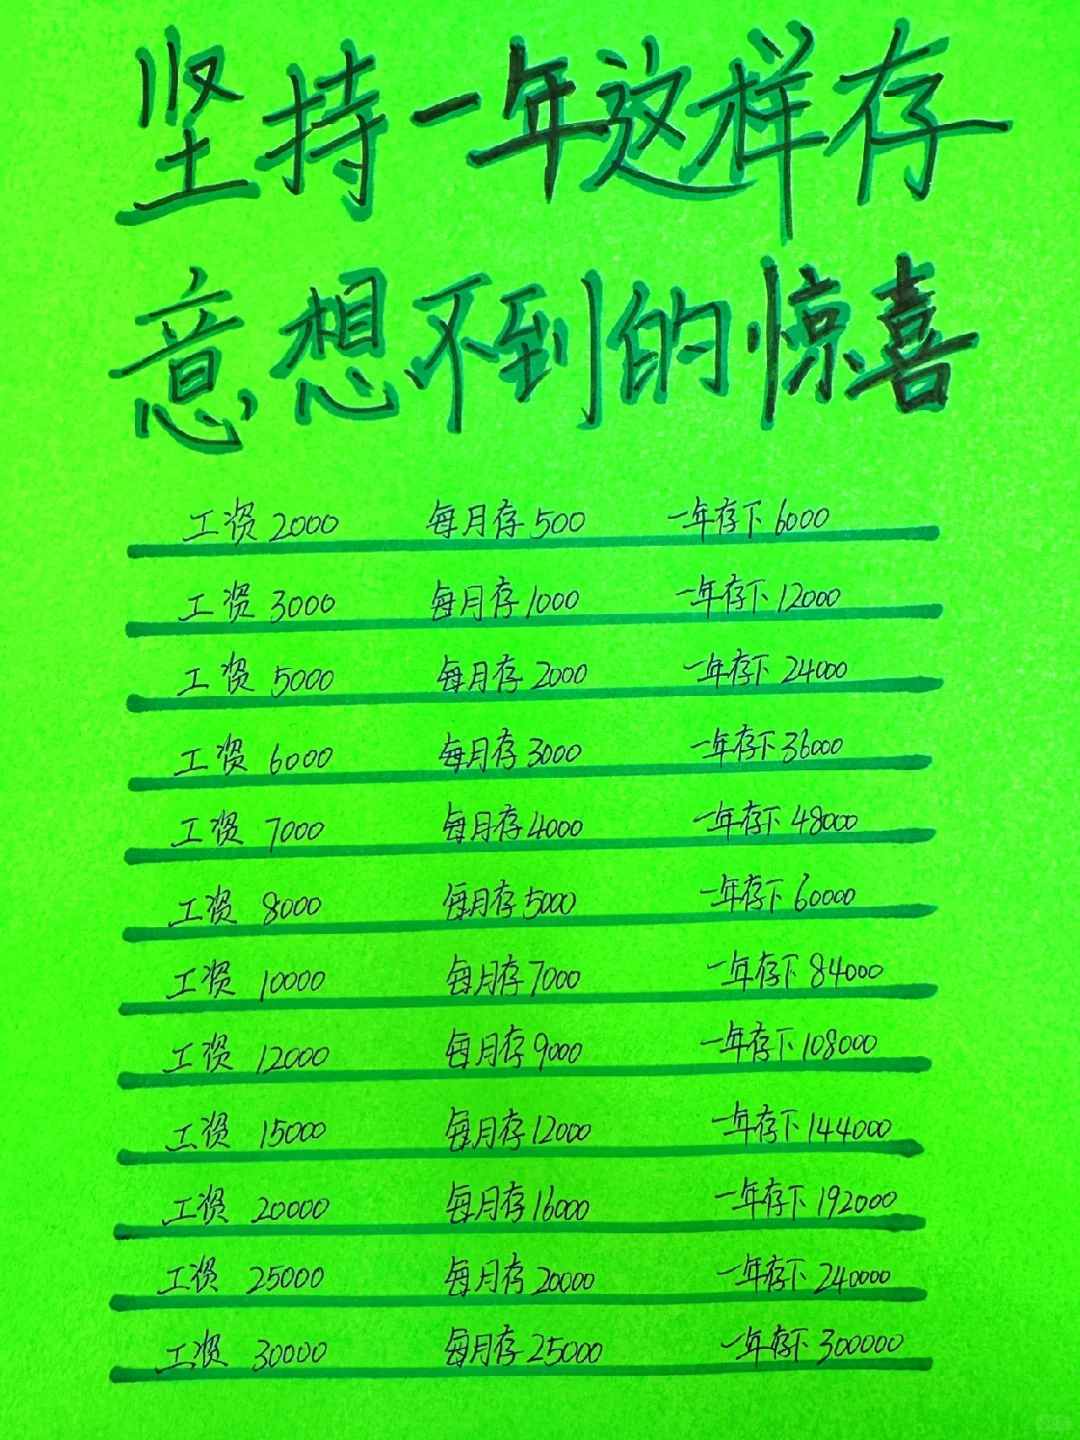 坚持一年这样存
意想不到的惊喜
工资 2000 每月存 500 一年存下 6000
工资 3000 每月存 1000 一年存下 12000
工资 5000 每月存 2000 一年存下 24000
工资 6000 每月存 3000 一年存下 36000
工资 7000 每月存 4000 一年存下 48000
工资 8000 每月存 5000 一年存下 60000
工资 10000 每月存 7000 一年存下 84000
工资 12000 每月存 9000 一年存下 108000
工资 15000 每月存 12000 一年存下 144000
工资 20000 每月存 16000 一年存下 192000
工资 25000 每月存 20000 一年存下 240000
工资 30000 每月存 25000 一年存下 300000